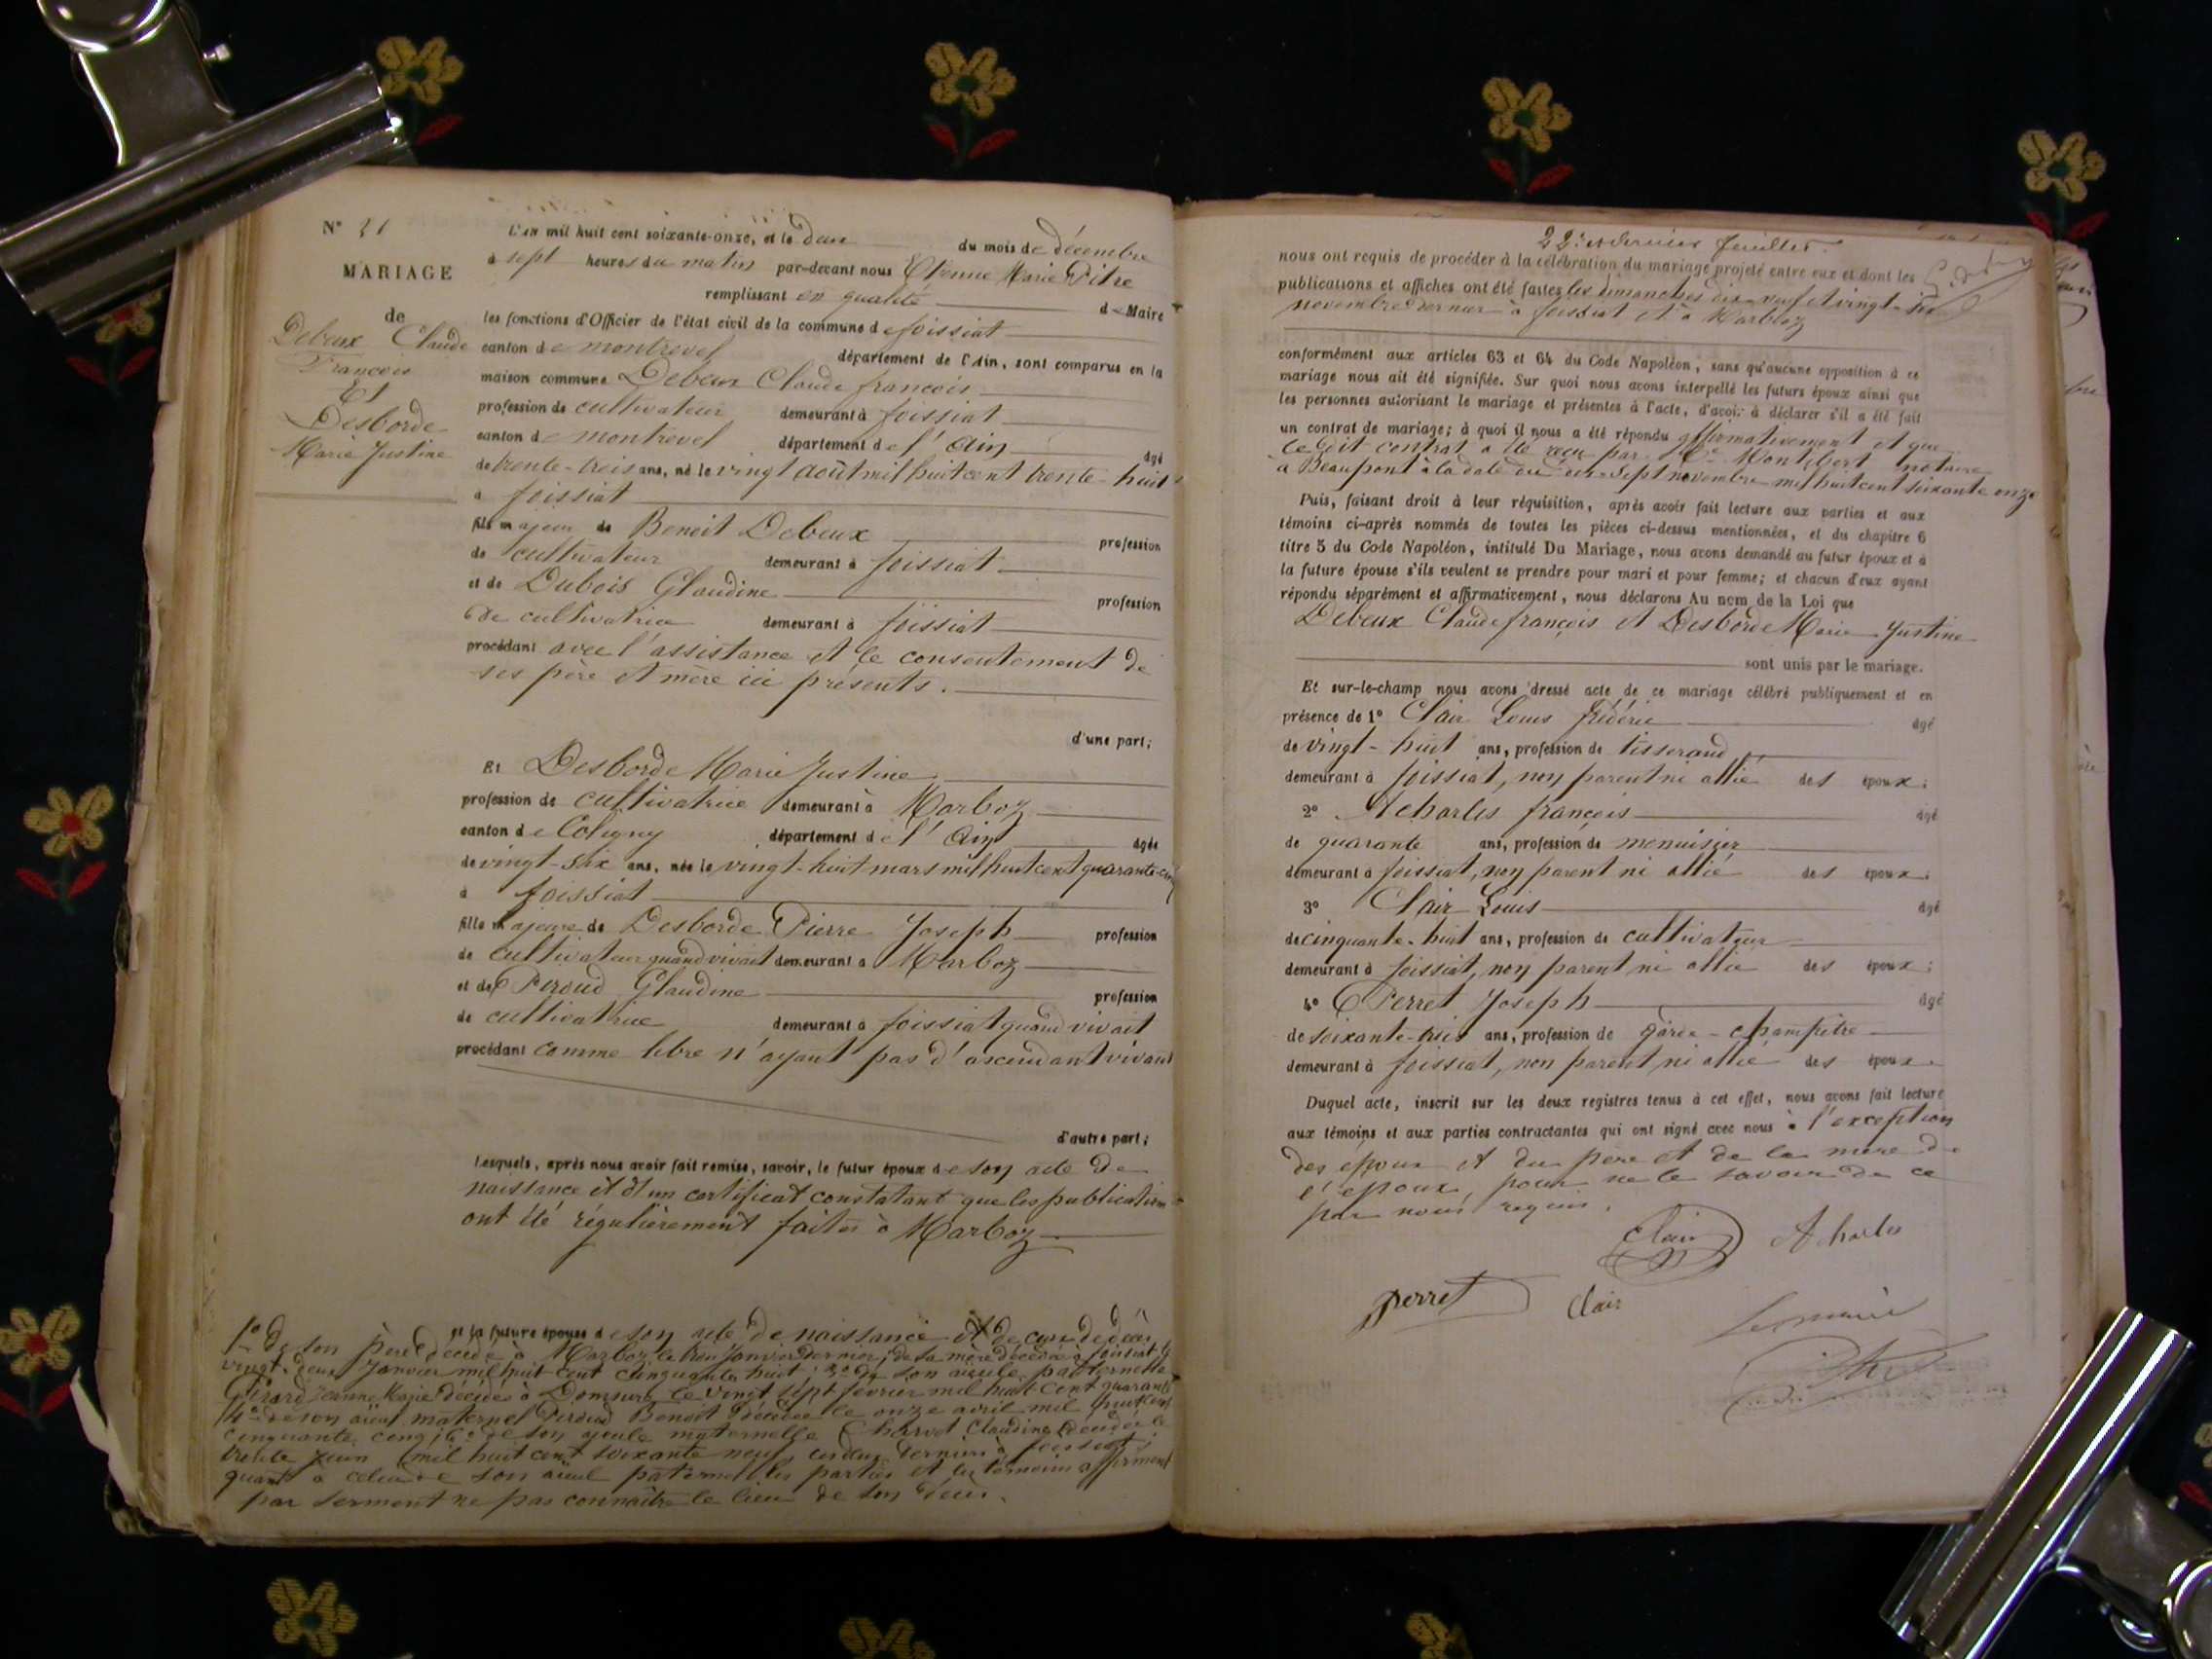 N° 21
MARIAGE
de
Debeux Claude
François
Et
Desborde
Marie Justine
L'an mil huit cent soixante-onze, et le deux du mois de décembre
à sept heures du matin par-devant nous Etienne Marie Pitre
remplissant en qualité de Maire
les fonctions d'Officier de l'état civil de la commune de foissiat
canton de montrevel département de l'Ain, sont comparus en la
maison commune Debeux Claude françois
profession de cultivateur demeurant à foissiat
canton de montrevel département de l'Ain âgé
de trente-trois ans, né le vingt août mil huit cent trente-huit
à foissiat
fils majeur de Benoit Debeux profession
de cultivateur demeurant à foissiat
et de Dubois Claudine profession
de cultivatrice demeurant à foissiat
procédant avec l'assistance et le consentement de
ses père et mère ici présents.
d'une part;
Et Desborde Marie Justine
profession de cultivatrice demeurant à Marboz
canton de Coligny département de l'Ain âgée
de vingt-six ans, née le vingt-huit mars mil huit cent quarante-cinq
à foissiat
fille majeure de Desborde Pierre Joseph profession
de cultivateur quand vivait demeurant à Marboz
et de Peroud Claudine profession
de cultivatrice demeurant à foissiat quand vivait
procédant comme libre n'ayant pas d'ascendant vivant
d'autre part;
Lesquels, après nous avoir fait remise, savoir, le futur époux de son acte de
naissance et d'un certificat constatant que les publications
ont été régulièrement faites à Marboz
et la future épouse de son acte de naissance et de ceux de décès
1° de son père décédé à Marboz le trois Janvier dernier; de sa mère décédée à foissiat le
vingt-deux Janvier mil huit cent cinquante huit; 3° de son aieule paternelle
Gérard Jeanne Marie décédée à Domsure le vingt sept février mil huit cent quarante
4° de son aïeul maternel Peroud Benoit décédé le onze avril mil huit cent
cinquante cinq; de son ayeule maternelle Charvet Claudine décédée le
trente juin mil huit cent soixante neuf, ces deux derniers à foissiat;
quant à celui de son aïeul paternel les parties et les témoins affirment
par serment ne pas connaître le lieu de son décès.
22e et dernier feuillet.
nous ont requis de procéder à la célébration du mariage projeté entre eux et dont les
publications et affiches ont été faites les dimanches dix-neuf et vingt-six
novembre dernier à foissiat et à Marboz
conformément aux articles 63 et 64 du Code Napoléon, sans qu'aucune opposition à ce
mariage nous ait été signifiée. Sur quoi nous avons interpellé les futurs époux ainsi que
les personnes autorisant le mariage et présentes à l'acte, d'avoir à déclarer s'il a été fait
un contrat de mariage; à quoi il nous a été répondu affirmativement et que
le dit contrat a été reçu par Me Montbert notaire
à Beaupont à la date du dix-sept novembre mil huit cent soixante onze
Puis, faisant droit à leur réquisition, après avoir fait lecture aux parties et aux
témoins ci-après nommés de toutes les pièces ci-dessus mentionnées, et du chapitre 6
titre 5 du Code Napoléon, intitulé Du Mariage, nous avons demandé au futur époux et à
la future épouse s'ils veulent se prendre pour mari et pour femme; et chacun d'eux ayant
répondu séparément et affirmativement, nous déclarons Au nom de la Loi que
Debeux Claude françois et Desborde Marie Justine
sont unis par le mariage.
Et sur-le-champ nous avons dressé acte de ce mariage célébré publiquement et en
présence de 1° Clair Louis frédéric âgé
de vingt-huit ans, profession de tisserand
demeurant à foissiat, non parent ni allié des époux;
2° Acharles françois âgé
de quarante ans, profession de menuisier
demeurant à foissiat, non parent ni allié des époux;
3° Clair Louis âgé
de cinquante-huit ans, profession de cultivateur
demeurant à foissiat, non parent ni allié des époux;
4° Perret Joseph âgé
de soixante-trois ans, profession de garde-champêtre
demeurant à foissiat, non parent ni allié des époux.
Duquel acte, inscrit sur les deux registres tenus à cet effet, nous avons fait lecture
aux témoins et aux parties contractantes qui ont signé avec nous à l'exception
des époux et du père et de la mère de
l'époux, pour ne le savoir de ce
par nous requis.
Clair Acharles
Perret Clair
Le maire
Pitre